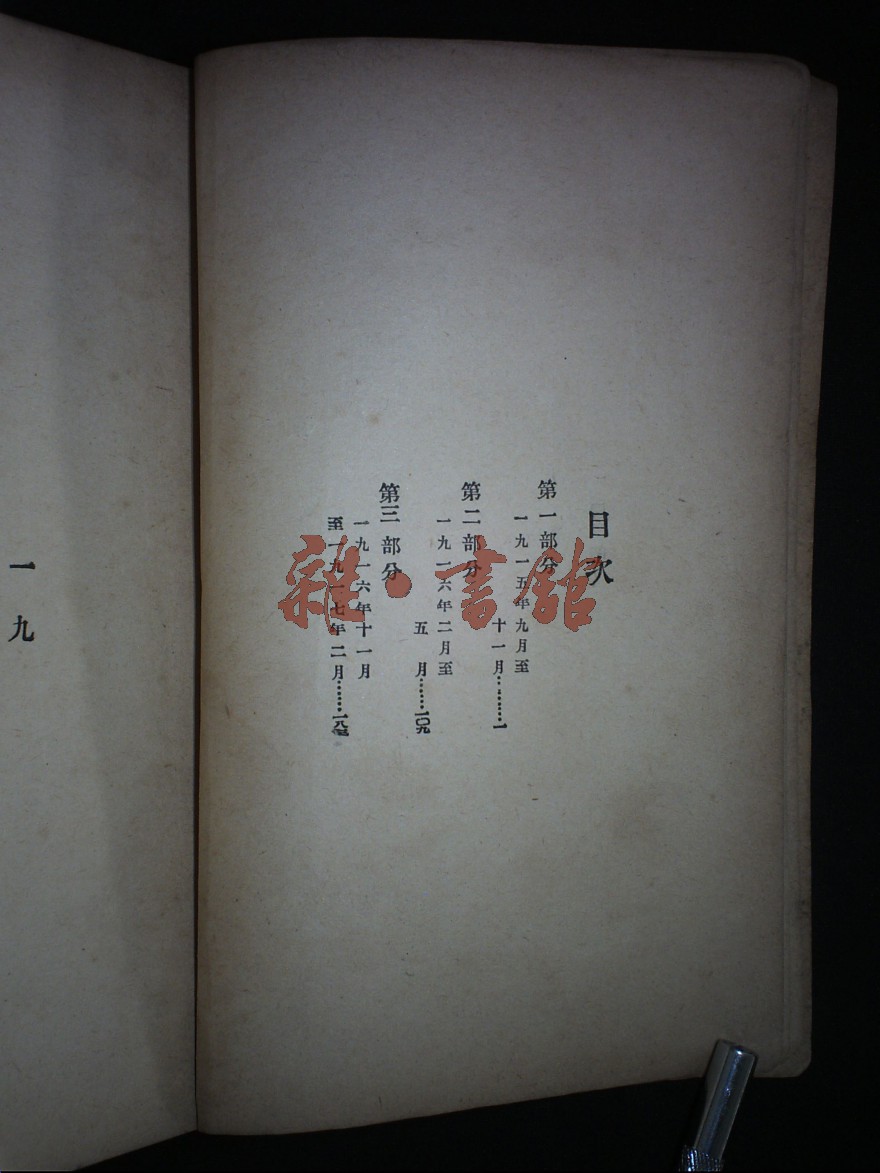 目次
第一部分
一九一五年九月至
十一月………一
第二部分
一九一六年二月至
五月………一〇九
第三部分
一九一六年十一月
至一九一七年二月………
一九
雜·書館